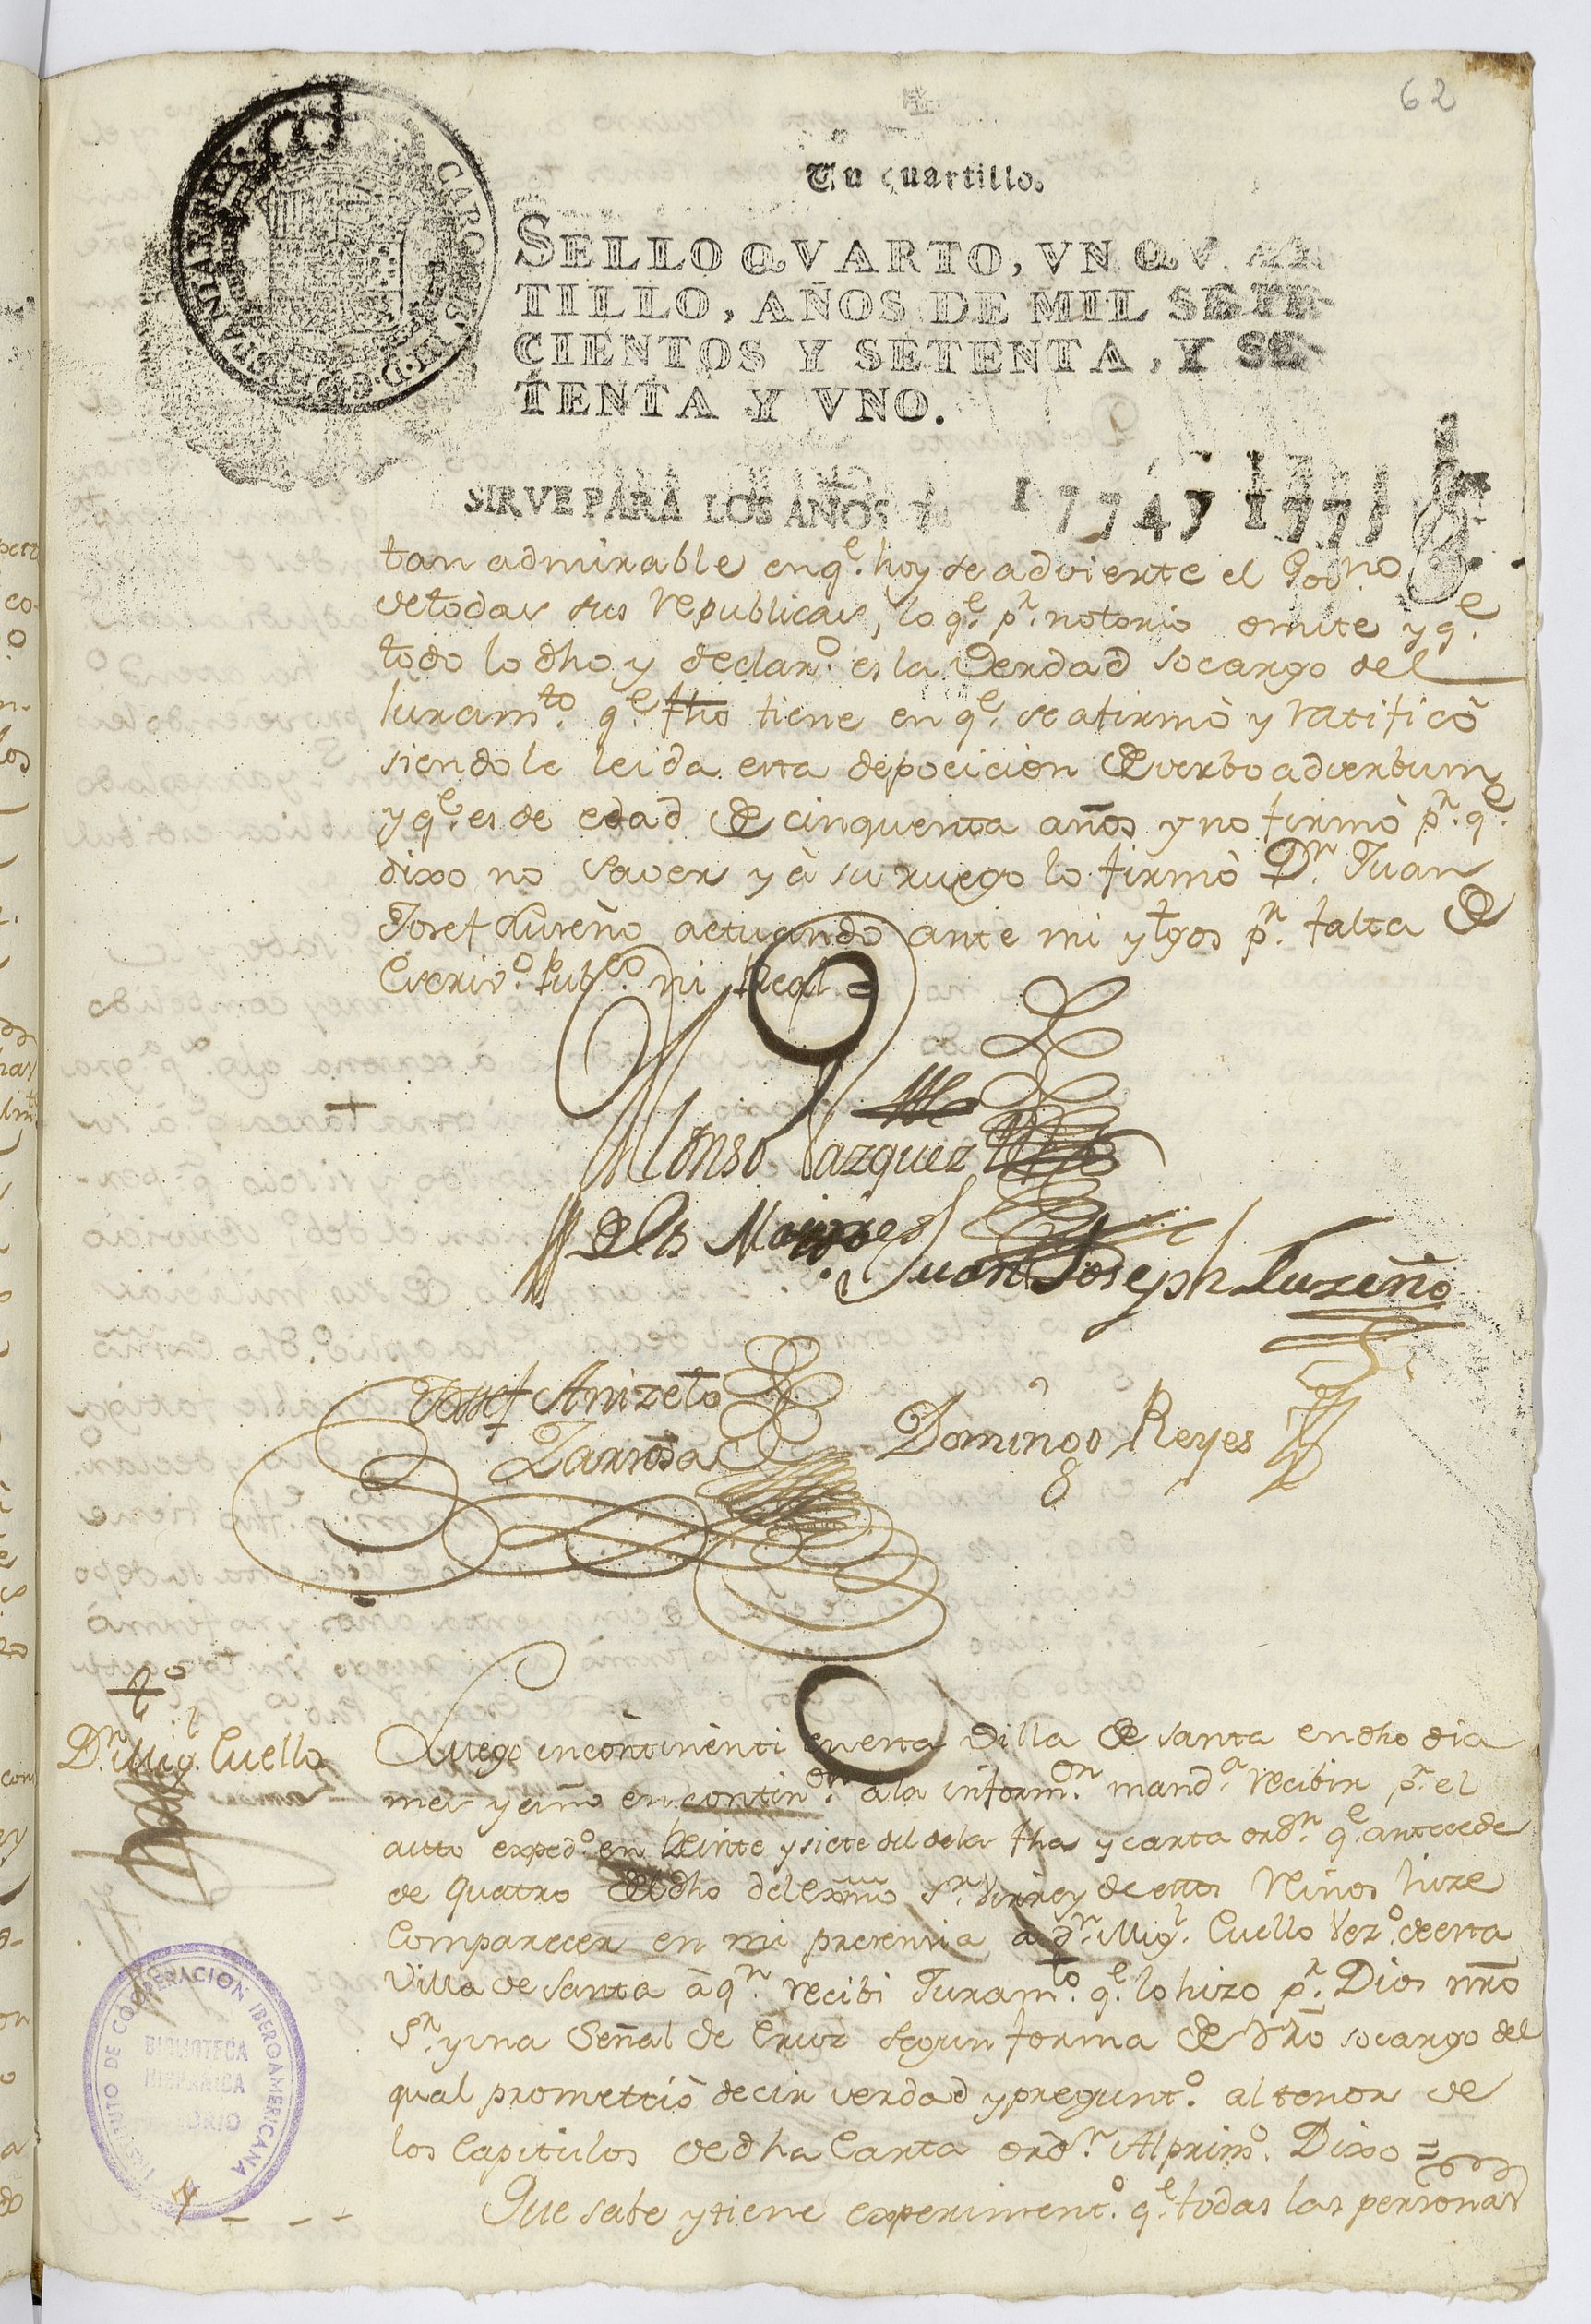 62
Un quartillo.
SELLO QVARTO, VN QVAR-
TILLO, AÑOS DE MIL SETE-
CIENTOS Y SETENTA, Y SE-
TENTA Y VNO.
SIRVE PARA LOS AÑOS D 1774 y 1775
tan admirable en q.e hoy se advierte el Gov.no
de todas sus republicas, lo q.e p.r notorio omite y q.e
todo lo dho y declar.o es la verdad socargo del
Juram.to q.e fho tiene en q.e se afirmò y ratificò
siendole leida esta deposicion de verbo adverbum
y q.e es de edad de cinquenta años y no firmò p.r q.e
dixo no saver y à su ruego lo firmò D.n Juan
Josef Luseño actuando ante mi y tgos p.r falta de
Escriv.o Pub.co ni Real =
Alonso Vazquez
de los
Juan Joseph Luzeño
Josef Anizeto
Larrosa
Domingo Reyes
t.o
D.n Mig.l Cuello
Luego incontinènti en esta Villa de santa en dho dia
mes y año en contin.on a la inform.on mand.a recibir p.r el
auto exped.o en Veinte y siete del de la fha y carta ord.n q.e antecede
de quatro del dho del Exmo S.r Virrey de estos Reinos hize
Comparecer en mi presencia à D.n Mig.l Cuello Vez.o de esta
Villa de santa à q.n recibi Juram.to q.e lo hizo p.r Dios nrõ
S.r y una Señal de Cruz segun forma de dro socargo del
qual promettiò decir verdad y pregunt.o al tenor de
los Capitulos de dha Carta ord.n Al prim.o Dixo =
Que sabe y tiene experiment.o q.e todas las personas
INSTITUTO DE COOPERACION IBEROAMERICANA
BIBLIOTECA
HISPANICA